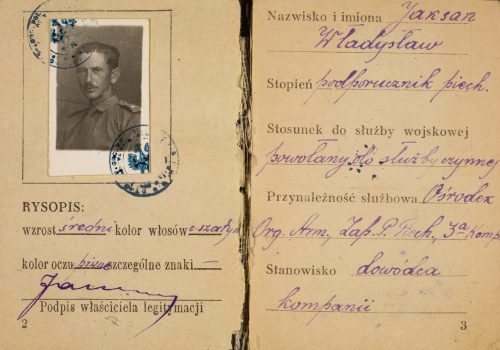 RYSOPIS:
wzrost średni kolor włosów c. szatyn
kolor oczu piwne szczególne znaki —
Podpis właściciela legitymacji
2
Nazwisko i imiona Jaksan
Władysław
Stopień podporucznik piech.
Stosunek do służby wojskowej
powołany do służby czynnej
Przynależność służbowa Ośrodek
Org. Arm., Zap. P. Piech., 3ª komp.
Stanowisko dowódca
kompanii
3